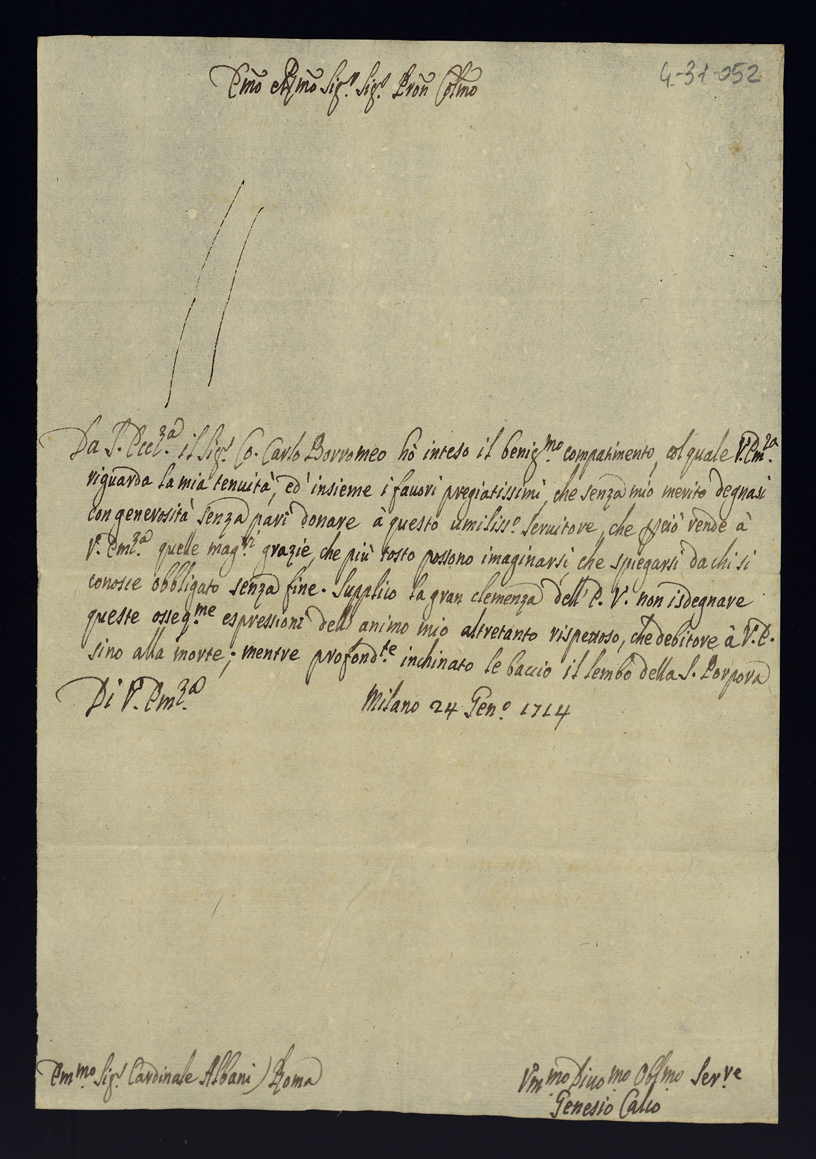 4-31-052
Emo e Rmo Sig.r Sig.r Pron Colmo
Da S. Eccl.za il Sig.r Co. Carlo Borromeo hò inteso il benig.mo compatimento, col quale V. Em.za
riguarda la mia tenuità, ed' insieme i favori pregiatissimi, che senza mio merito degnasi
con generosità senza pari donare à questo umiliss.o servitore, che perciò rende à
V. Em.za quelle mag.ri grazie, che più tosto possono imaginarsi, che spiegarsi da chi si
conosce obbligato senza fine. Supplico la gran clemenza dell' E. V. non isdegnare
queste osseq.me espressioni dell' animo mio altretanto rispettoso, che debitore à V. E.
sino alla morte; mentre profond.te inchinato le baccio il lembo della S. Porpora
Di V. Em.za Milano 24 Gen.o 1714
Em.mo Sig.r Cardinale Albani) Roma
Vm.mo Divo.mo Obl.mo Ser.re
Genesio Calco